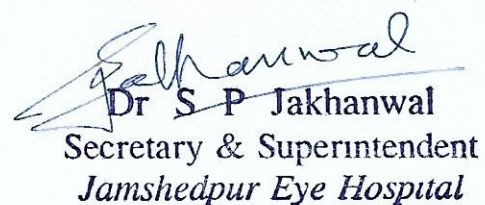 Jakhanwal
Dr S P Jakhanwal
Secretary & Superintendent
Jamshedpur Eye Hospital